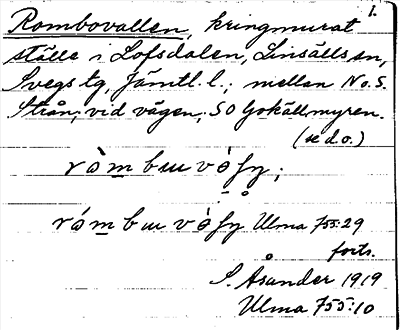 1.
Rombovallen, kringmurat
ställe i Lofsdalen, Linsälls sn,
Svegs tg, Jämtl. l.; mellan No. S.
Strån, vid vägen, SO Gokällmyren.
(se d. o.)
Ulma 755:29
forts.
S. Åsander 1919
Ulma 755:10